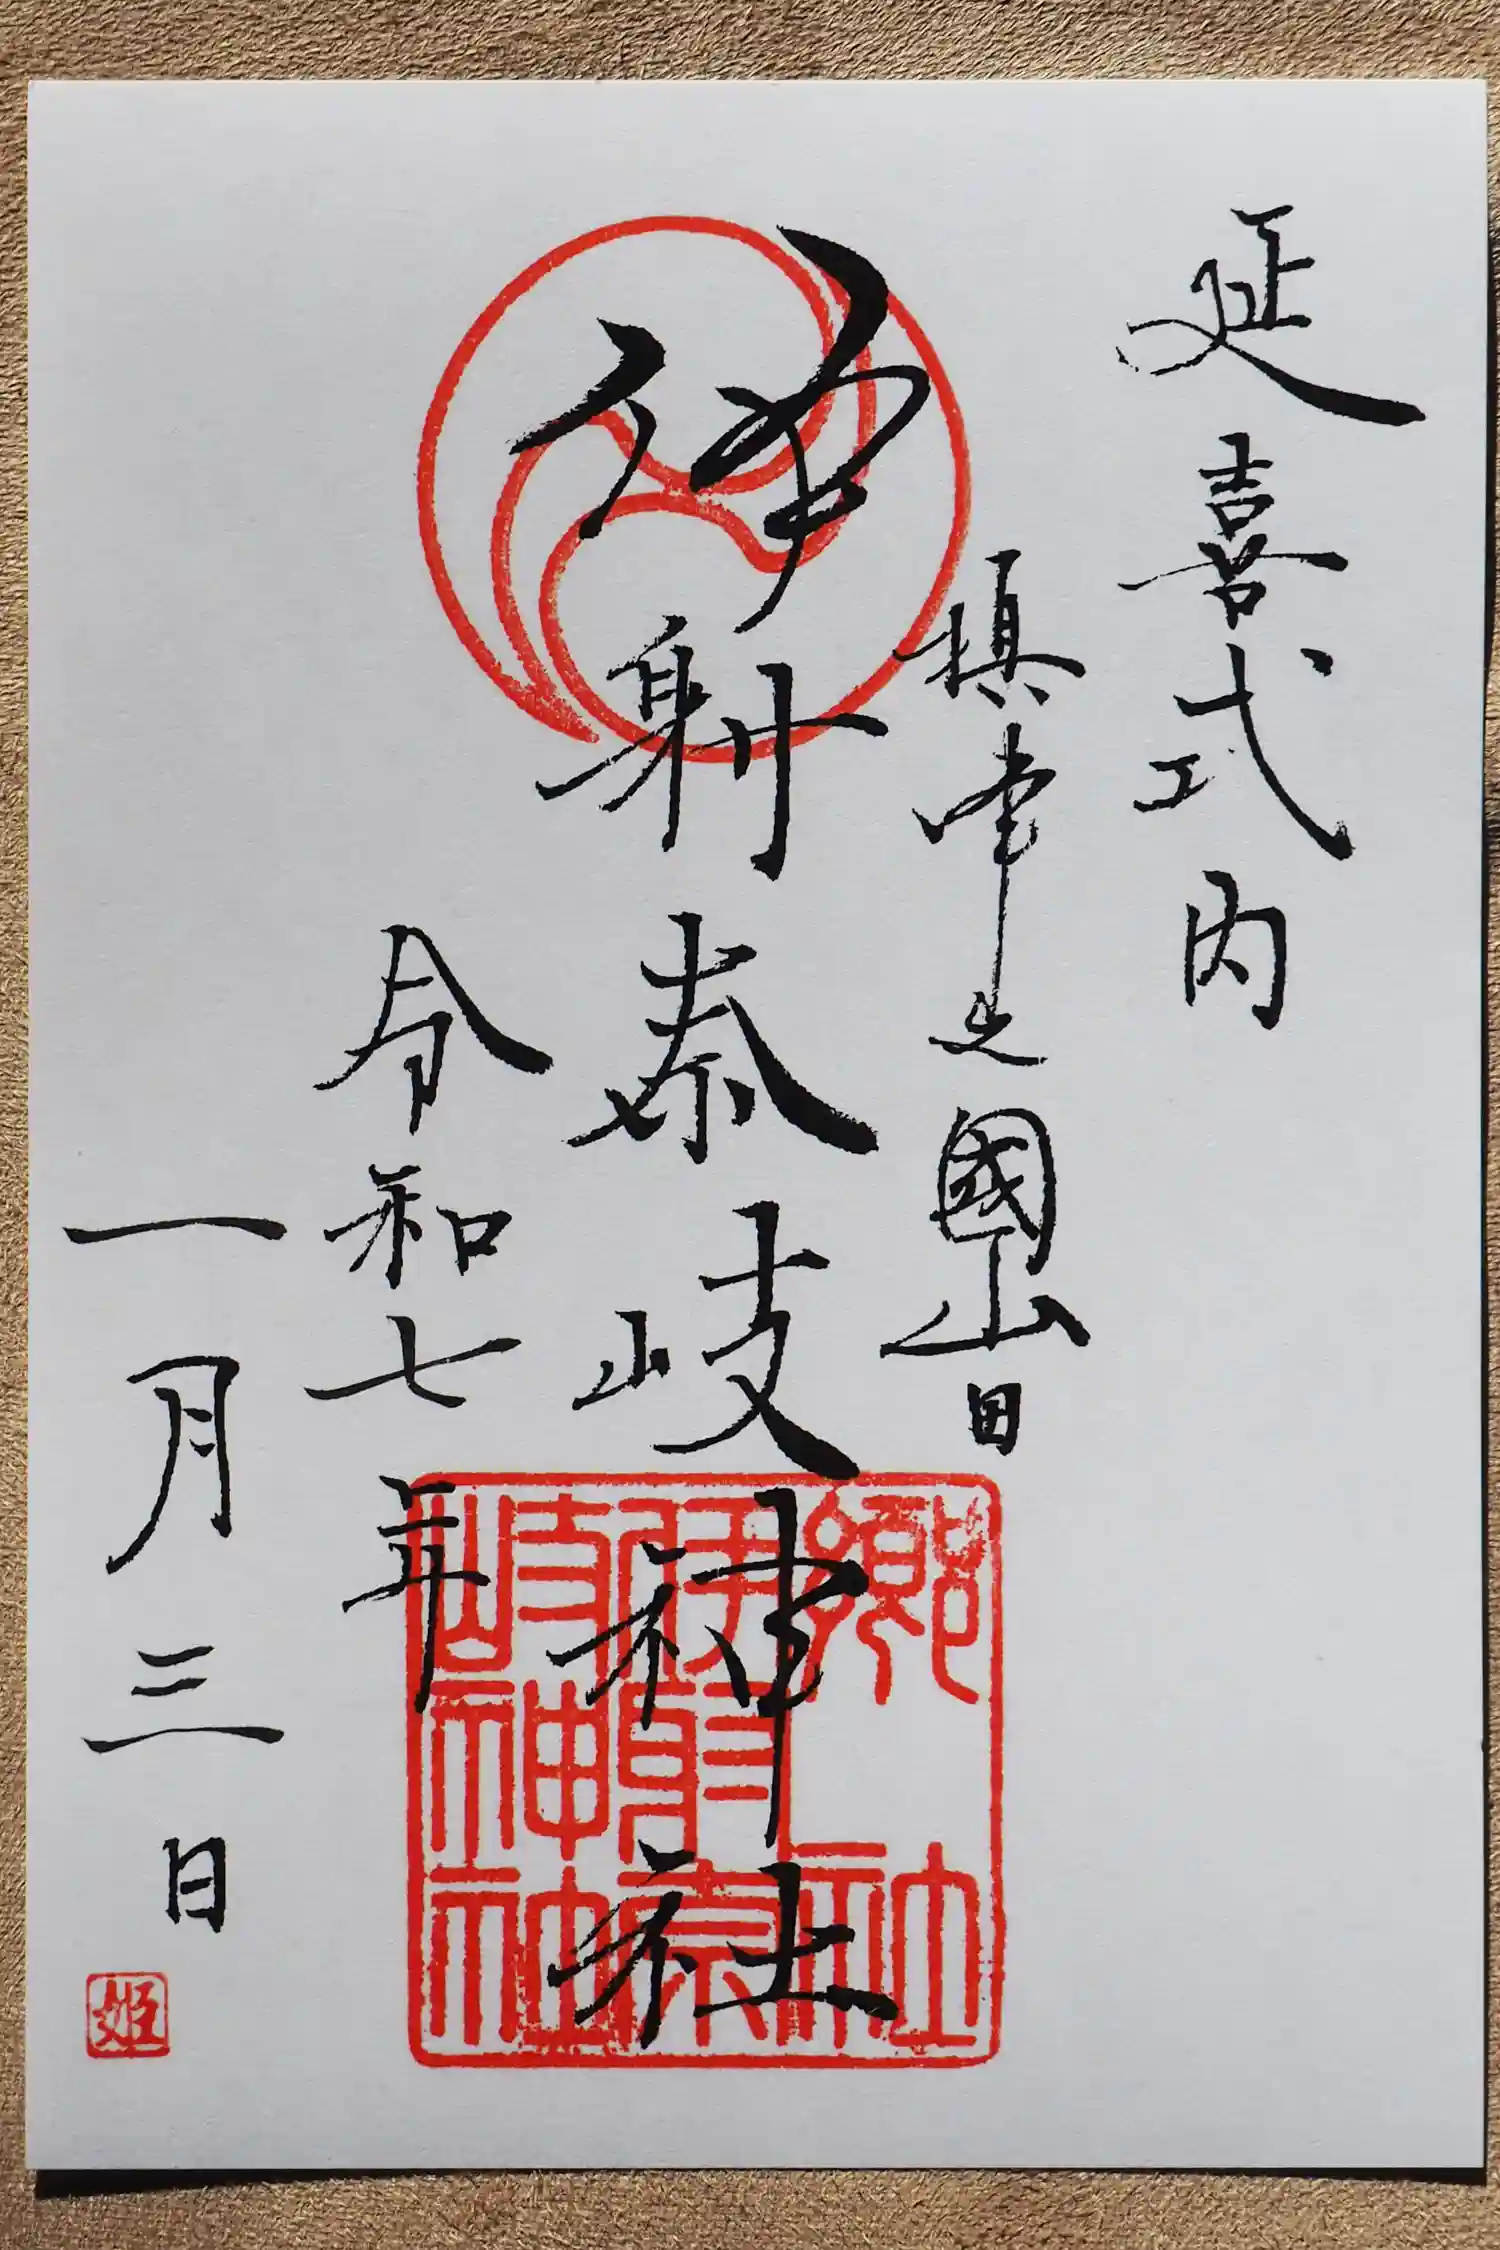 延喜式内
摂津之國山田
伊射奈岐神社
令和七年
一月三日
郷社
伊射奈
岐神社
姫